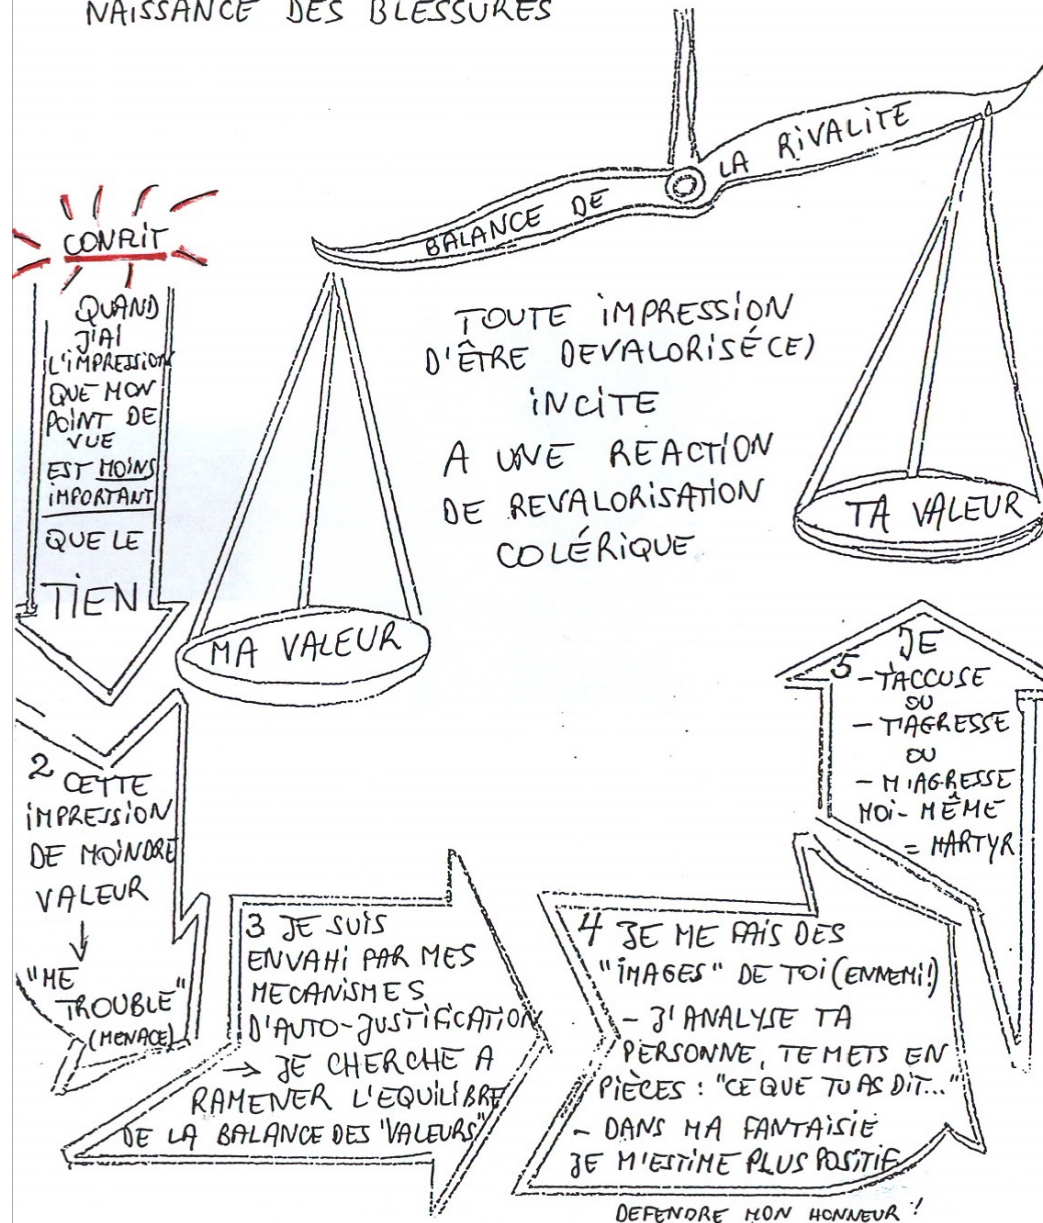 NAISSANCE DES BLESSURES
BALANCE DE LA RIVALITE
CONFLIT
QUAND
J'AI
L'IMPRESSION
QUE MON
POINT DE
VUE
EST MOINS
IMPORTANT
QUE LE
TIEN
TOUTE IMPRESSION
D'ÊTRE DEVALORISÉ(E)
INCITE
A UNE REACTION
DE REVALORISATION
COLÉRIQUE
MA VALEUR
TA VALEUR
2 CETTE
IMPRESSION
DE MOINDRE
VALEUR
↓
"ME
TROUBLE"
(MENACE)
3 JE SUIS
ENVAHI PAR MES
MECANISMES
D'AUTO-JUSTIFICATION
→ JE CHERCHE A
RAMENER L'EQUILIBRE
DE LA BALANCE DES "VALEURS"
4 JE ME FAIS DES
"IMAGES" DE TOI (ENNEMI!)
- J'ANALYSE TA
PERSONNE, TE METS EN
PIÈCES : "CE QUE TU AS DIT..."
- DANS MA FANTAISIE
JE M'ESTIME PLUS POSITIF
DEFENDRE MON HONNEUR !
5 JE
- T'ACCUSE
OU
- T'AGRESSE
OU
- M'AGRESSE
MOI-MÊME
= MARTYR